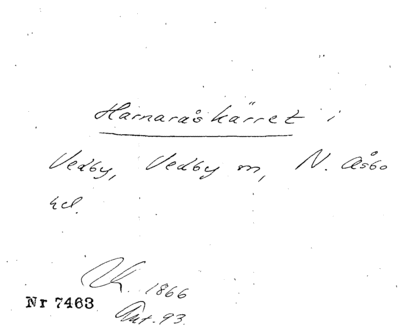 Harnaråskärret i
Vedby, Vedby sn, N. Åsbo
hd.
1866
Ant. 93.
Nr 7463